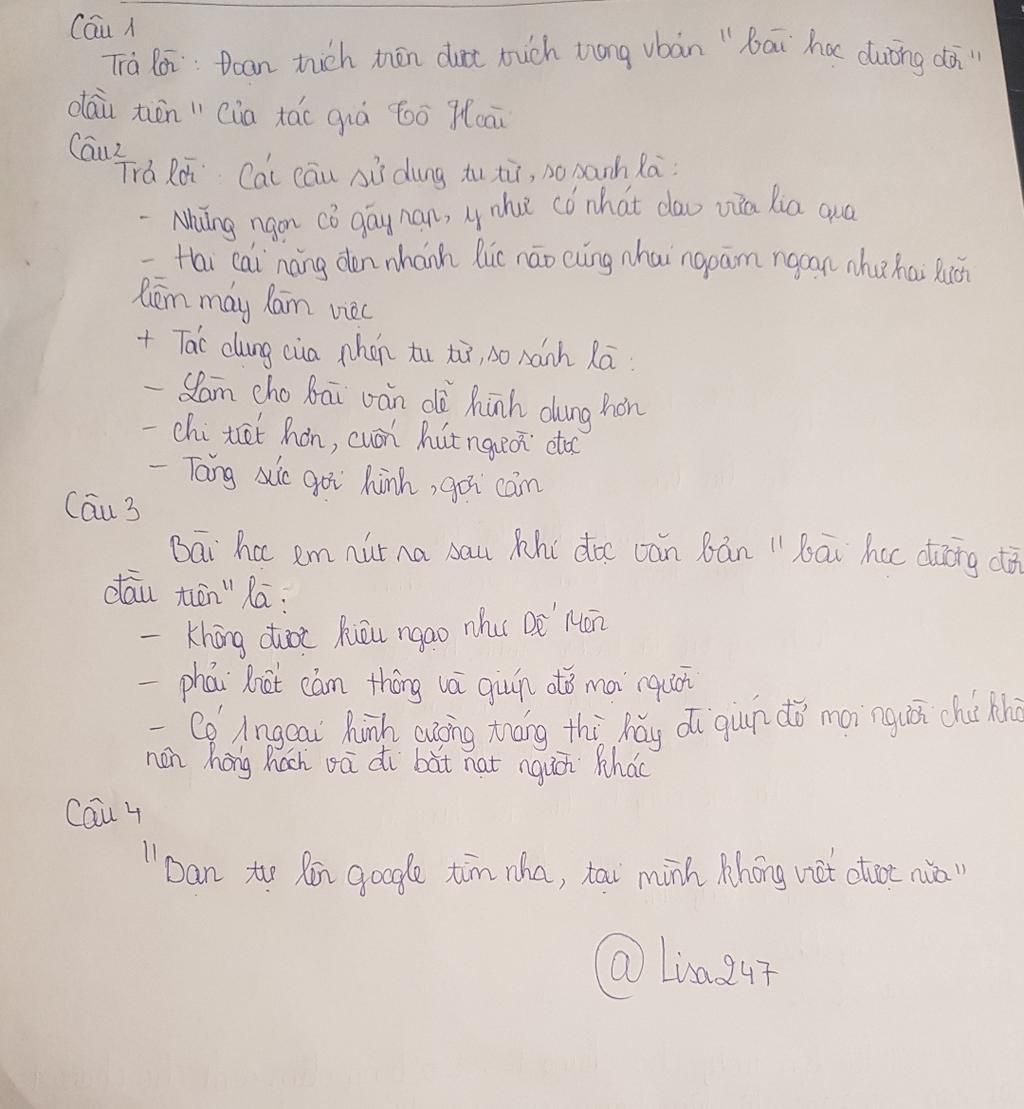 Câu 1
Trả lời : Đoạn trích trên được trích trong vbản " bài học đường đời "
đầu tiên " của tác giả Tô Hoài
Câu 2
Trả lời : Các câu sử dụng tu từ, so sanh là :
- Những ngọn cỏ gãy rạp, y như có nhát dao vừa lia qua
- Hai cái răng đen nhánh lúc nào cũng nhai ngoàm ngoạp như hai lưỡi
liềm máy làm việc
+ Tác dụng của phép tu từ, so sánh là :
- Làm cho bài văn dễ hình dung hơn
- chi tiết hơn, cuốn hút người đọc
- Tăng sức gợi hình, gợi cảm
Câu 3
Bài học em rút ra sau khi đọc văn bản " bài học đường đời
đầu tiên " là :
- Không được kiêu ngạo như Dế Mèn
- phải biết cảm thông và giúp đỡ mọi người
- Có 1 ngoại hình cường tráng thì hãy đi giúp đỡ mọi người chứ khô
nên hống hách và đi bắt nạt người khác
Câu 4
" Bạn tự lên google tìm nha, tại mình không viết được nữa "
@ Lisa247